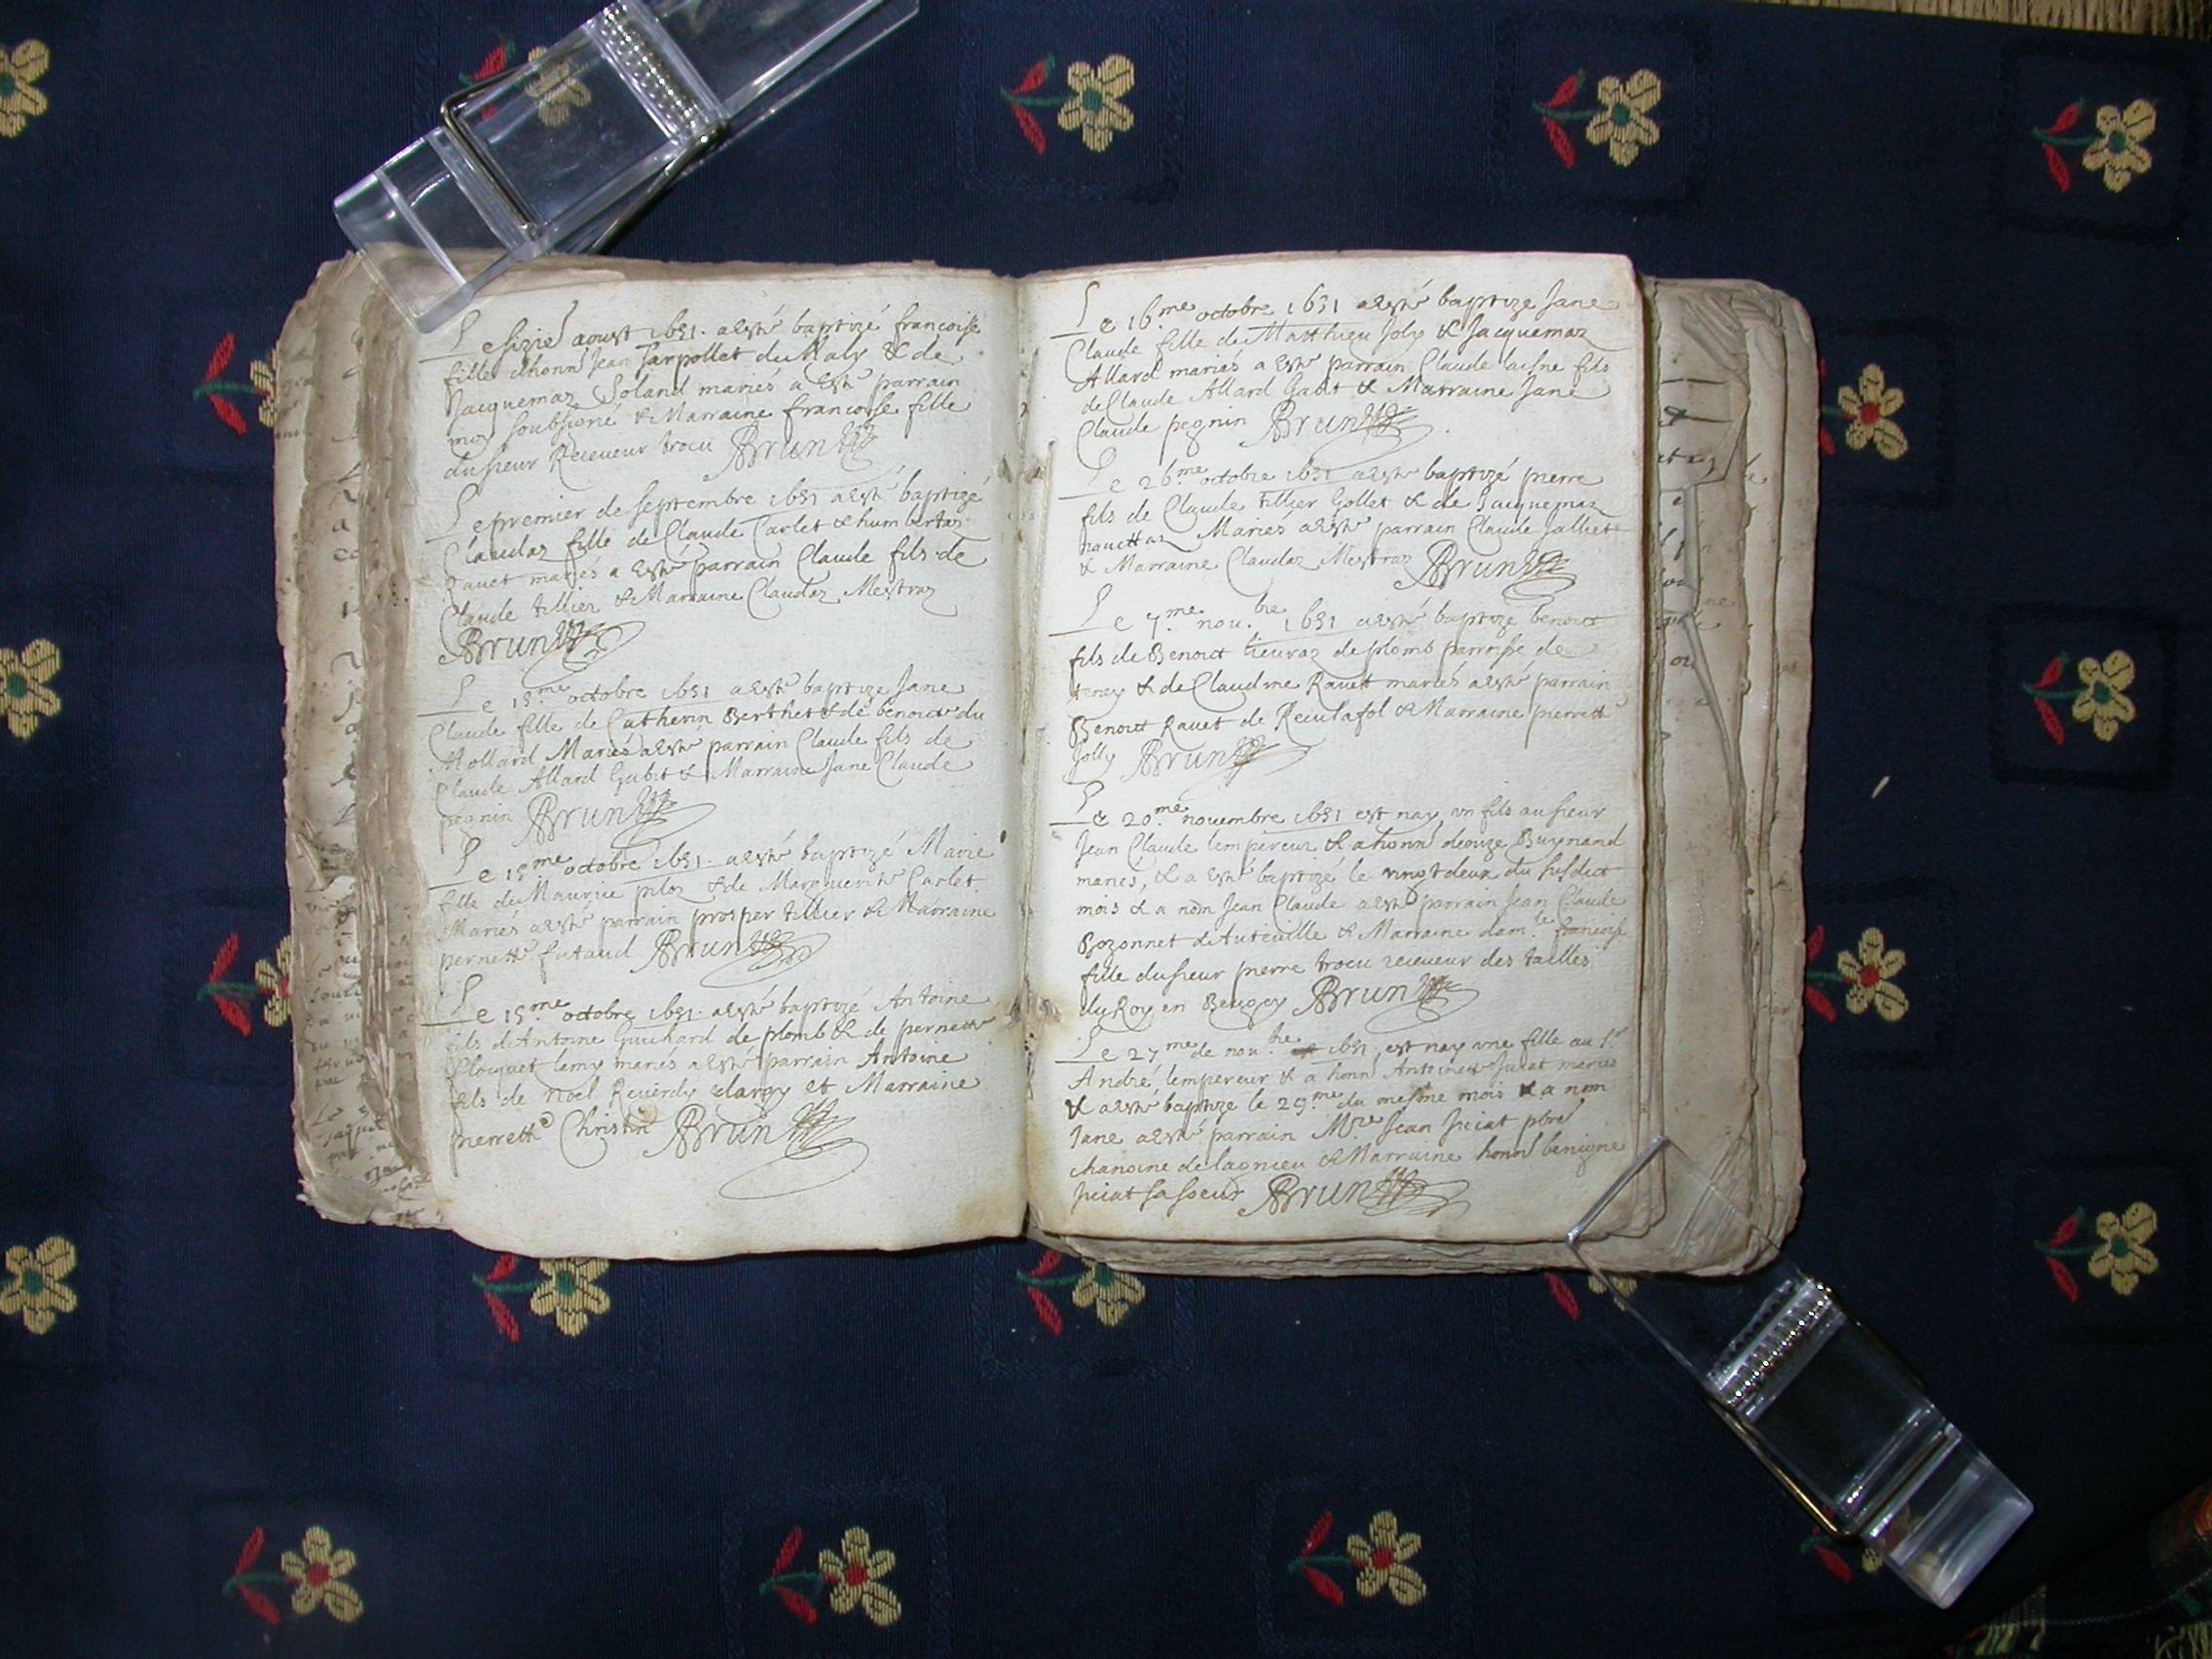 Le sizie aoust 1651. a esté baptizé francoise
fille d'honn Jean Sarpollet du Maly & de
Jacquemaz Soland mariés a esté parrain
moy soubsigné & Marraine francoise fille
du sieur Receveur trocu Brun
Le premier de septembre 1651 a esté baptizé
Claudaz fille de Claude Carlet & humbertaz
Ravet mariés a esté parrain Claude fils de
Claude tillier & Marraine Claudaz Mestraz
Brun
Le 15.me octobre 1651 a esté baptizé Jane
Claude fille de Catherin Berthet & de benoite du
Mollard Mariés a esté parrain Claude fils de
Claude Allard Gabit & Marraine Jane Claude
pegnin Brun
Le 15.me octobre 1651. a esté baptizé Marie
fille de Maurice piloz & de Marguerite Carlet
Mariés a esté parrain prosper tillier & Marraine
pernette futaud Brun
Le 15.me octobre 1651. a esté baptizé Antoine
fils d'Antoine Guichard de plomb & de pernette
Plocquet lamy mariés a esté parrain Antoine
fils de Noel Reverdy et Marraine
pierrette Christin Brun
Le 16.me octobre 1651 a esté baptize Jane
Claude fille de Matthieu Joly & Jacquemaz
Allard mariés a esté parrain Claude laisne fils
de Claude Allard Gabit & Marraine Jane
Claude pegnin Brun
Le 26.me octobre 1651 a esté baptizé pierre
fils de Claude tillier Gollet & de Jacquemaz
navettaz Mariés a esté parrain Claude Jalliet
& Marraine Claudaz Mestraz Brun
Le 7.me nou.bre 1651 a esté baptize benoict
fils de Benoict tievraz de plomb parroisse de
tenay & de Claudine Ravet mariés a esté parrain
Benoict Ravet de Reculafol & Marraine pierrette
Jolly Brun
Le 20.me novembre 1651 est nay un fils au sieur
Jean Claude lempereur & a honn deouze Buynand
mariés, & a esté baptizé le vingt deux du susdict
mois & a nom Jean Claude a esté parrain Jean Claude
Bozonnet d'Auteville & Marraine dam.le francoise
fille du sieur pierre trocu receveur des tailles
du Roy en Beugey Brun
Le 27.me de nou.bre 1651, est nay une fille au S.r
André lempereur & a honn Antoinette Juiat mariés
& a esté baptize le 29.me du mesme mois & a nom
Jane a esté parrain M.re Jean Juiat pbre
chanoine de lagnieu & Marraine honn benigne
Juiat sa soeur Brun